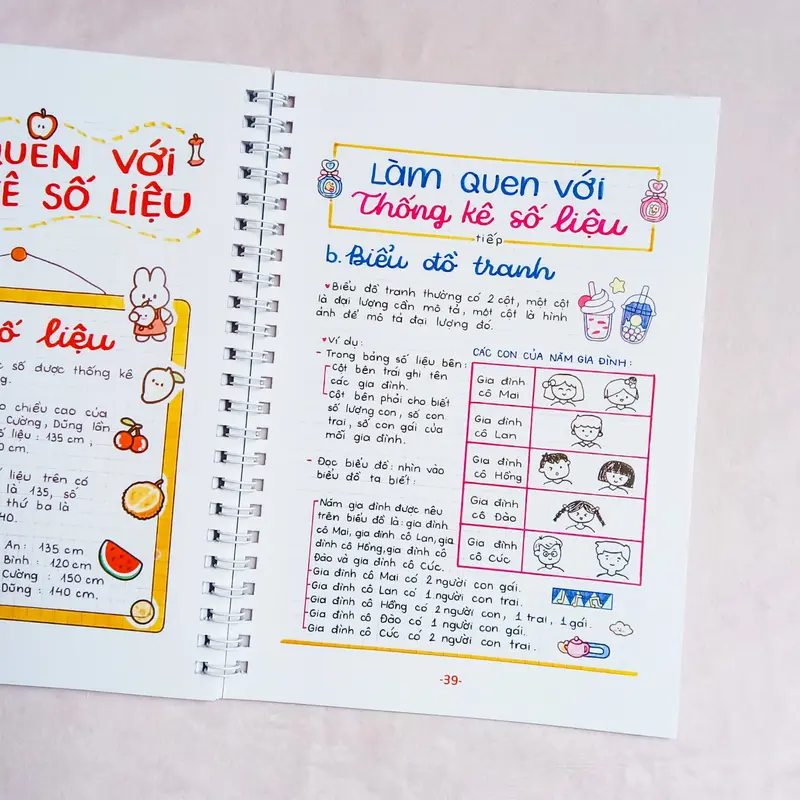 QUEN VỚI
SỐ LIỆU
số liệu
số được thống kê
chiều cao của
Cường, Dũng lần
liệu : 135 cm,
cm.
liệu trên có
là 135, số
thứ ba là
An : 135 cm
Bình : 120 cm
Cường : 150 cm
Dũng : 140 cm.
Làm quen với
Thống kê số liệu
tiếp
b. Biểu đồ tranh
Biểu đồ tranh thường có 2 cột, một cột
là đại lượng cần mô tả, một cột là hình
ảnh để mô tả đại lượng đó.
Ví dụ :
- Trong bảng số liệu bên :
Cột bên trái ghi tên
các gia đình.
Cột bên phải cho biết
số lượng con, số con
trai, số con gái của
mỗi gia đình.
- Đọc biểu đồ : nhìn vào
biểu đồ ta biết :
CÁC CON CỦA NĂM GIA ĐÌNH :
Gia đình
cô Mai
Gia đình
cô Lan
Gia đình
cô Hồng
Gia đình
cô Đào
Gia đình
cô Cúc
Năm gia đình được nêu
trên biểu đồ là : gia đình
cô Mai, gia đình cô Lan, gia
đình cô Hồng, gia đình cô
Đào và gia đình cô Cúc.
Gia đình cô Mai có 2 người con gái.
Gia đình cô Lan có 1 người con trai.
Gia đình cô Hồng có 2 người con, 1 trai, 1 gái.
Gia đình cô Đào có 1 người con gái.
Gia đình cô Cúc có 2 người con trai.
-39-